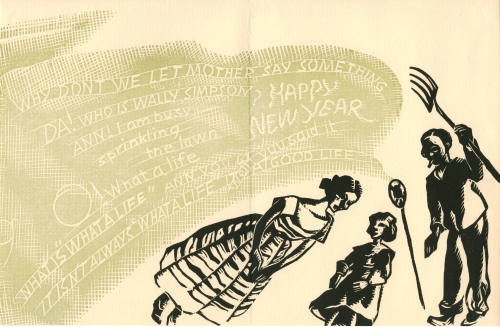 WHY DON'T WE LET MOTHER SAY SOMETHING
DA! WHO IS WALLY SIMPSON? HAPPY
ANN! I am busy NEW YEAR
sprinkling
the lawn
O! What a life
ANN you said it
WHAT IS "WHAT A LIFE"
IT ISN'T ALWAYS "WHAT A LIFE" ITS A GOOD LIFE